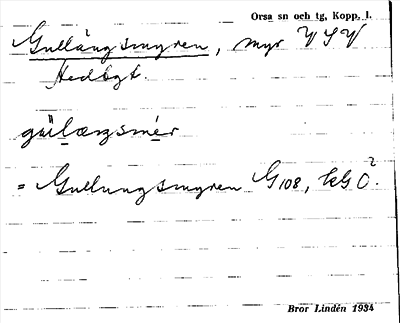 Orsa sn och tg, Kopp. l.
Gullängsmyren, myr V S V
Hedbgt.
gülægsmér
= Gullungsmyren G 108, kG Ö².
Bror Lindén 1934